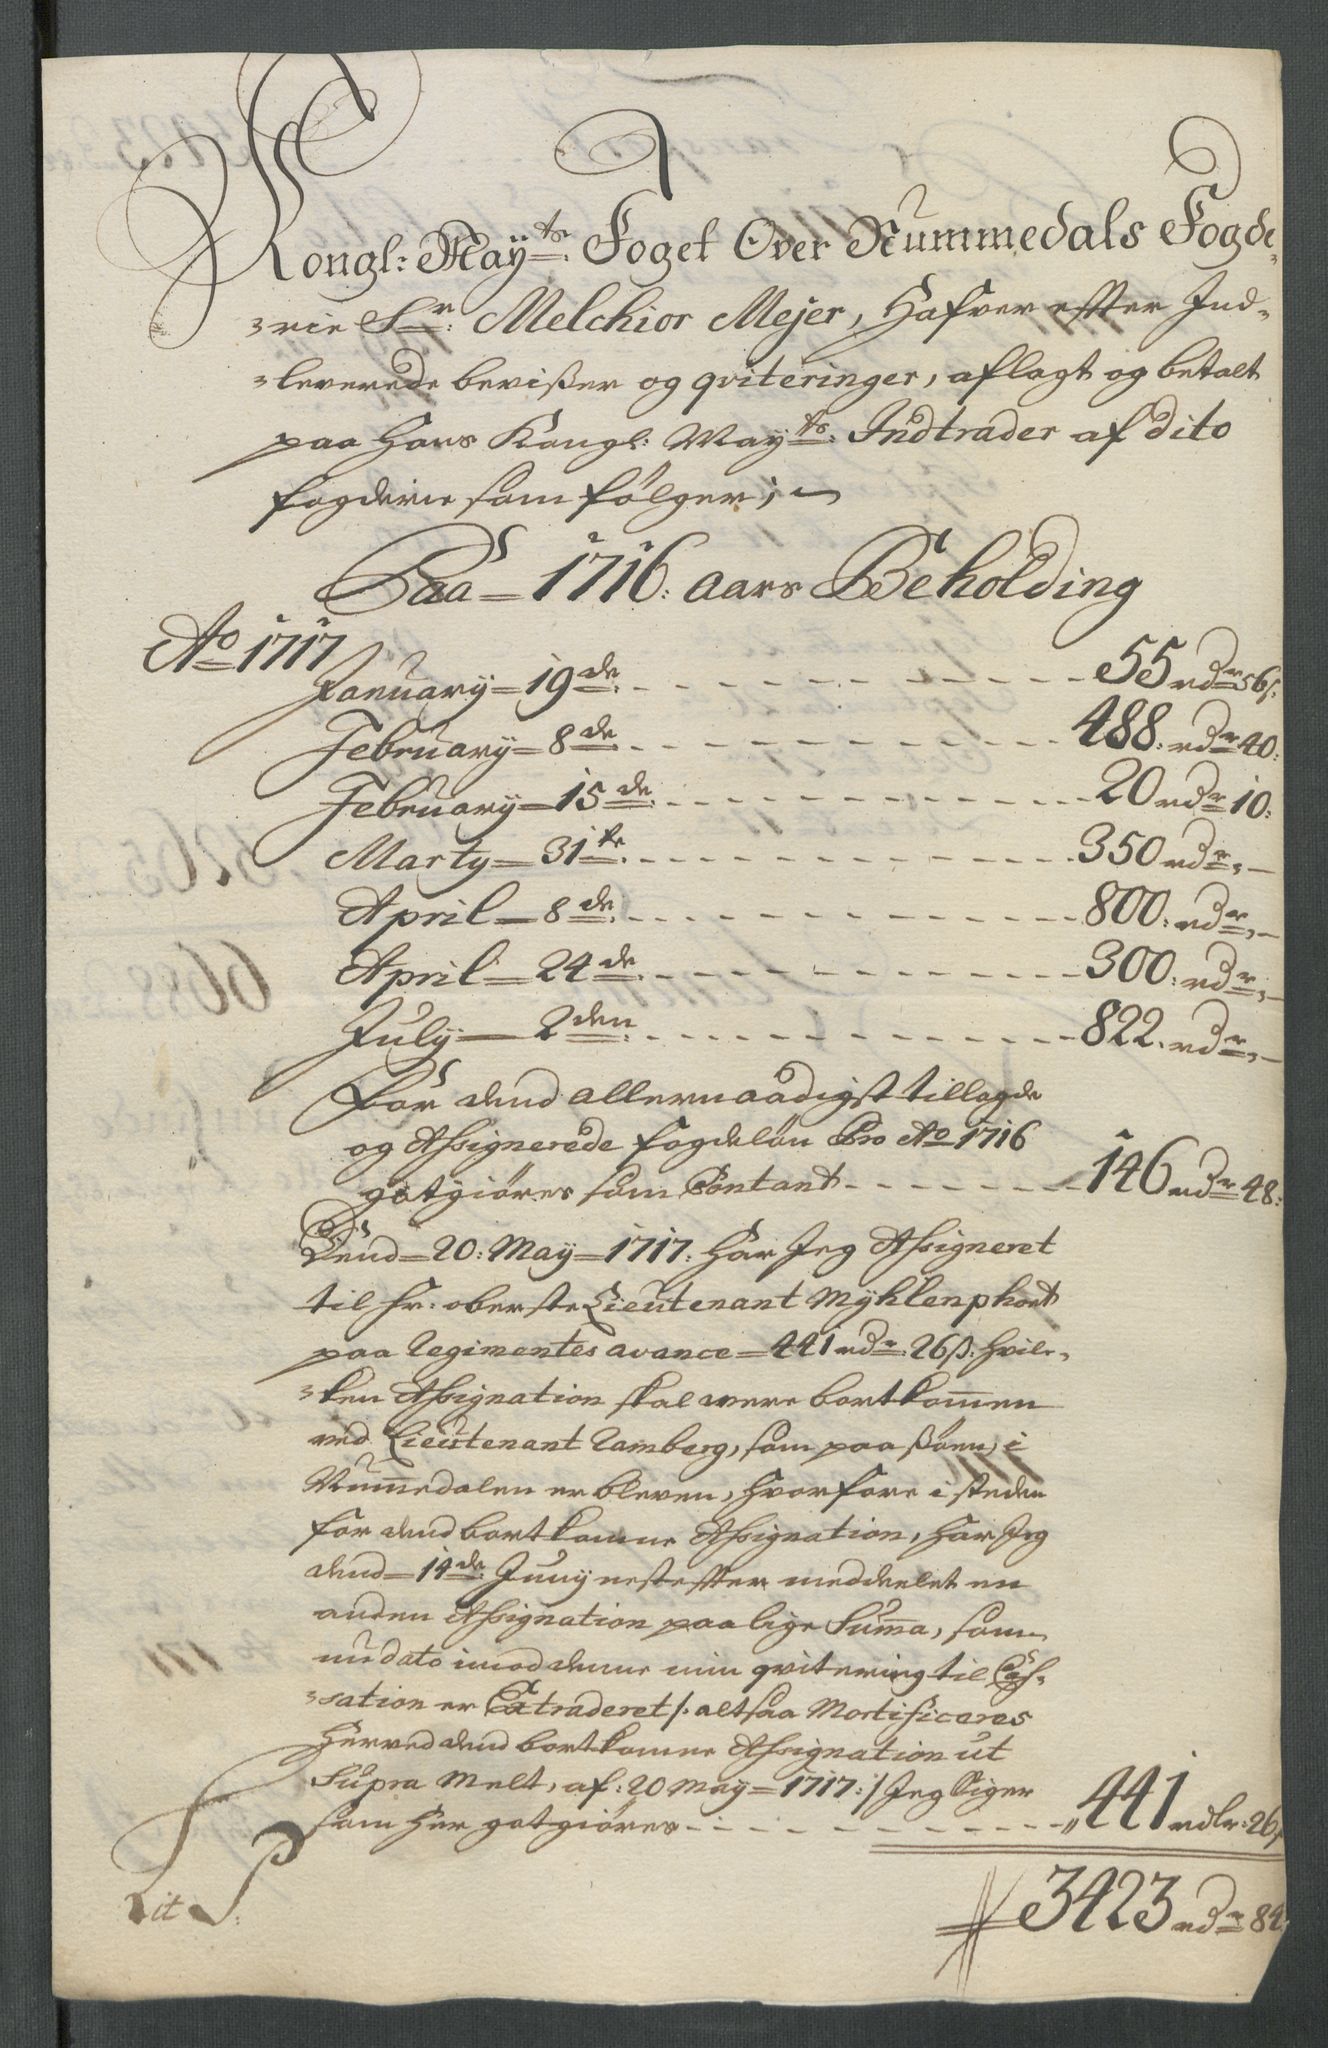 Kongl: May:ts Foget Over Nummedals Fogde-
-rie Sr: Melchior Mejer, Hafver efter Ind-
-leverede bevißer og qviteringer, aflagt og betalt
paa Hans Kongl: May:ts Indtrader af dito
fogderie som følger;
Paa 1716: aars Beholding
Ao 1717
January 19de 55 rdr 56s:
February 8de 488: rdr 40:
February 15de 20 rdr 10:
Marty 31te 350 rdr,-
April 8de 800: rdr,-
April 24de 300: rdr,-
July 2den 822. rdr,-
For dend allernaadigst tillagde
og Assignerede fogdeløn Pro Ao 1716
gotgiøres som Contant 146 rdr 48:
Dend 20: May 1717: Har Jeg Assigneret
til Hr: oberste Lieutenant Myhlenphort
paa Regimentes avance 441 rdr 26ß: hvil-
-ken Assignation skal were bortkommen
ved Lieutenant Ramberg, som paa Søen i
Nummedalen er bleven, hvorfore i steden
for dend bortkomne Assignation, har Jeg
dend 14de Juny nestefter meddeelet en
anden Assignation paa lige Summa, som
nu dato imod denne min qvitering til Cas-
-sation er Extraderet /: altsaa Mortificeres
herved dend bortkomne Assignation ut
Supra Melt, af: 20 May 1717:/ Jeg Siger
som her gotgiøres 441 rdlr: 26s
3423 rdr 84
Lit P: